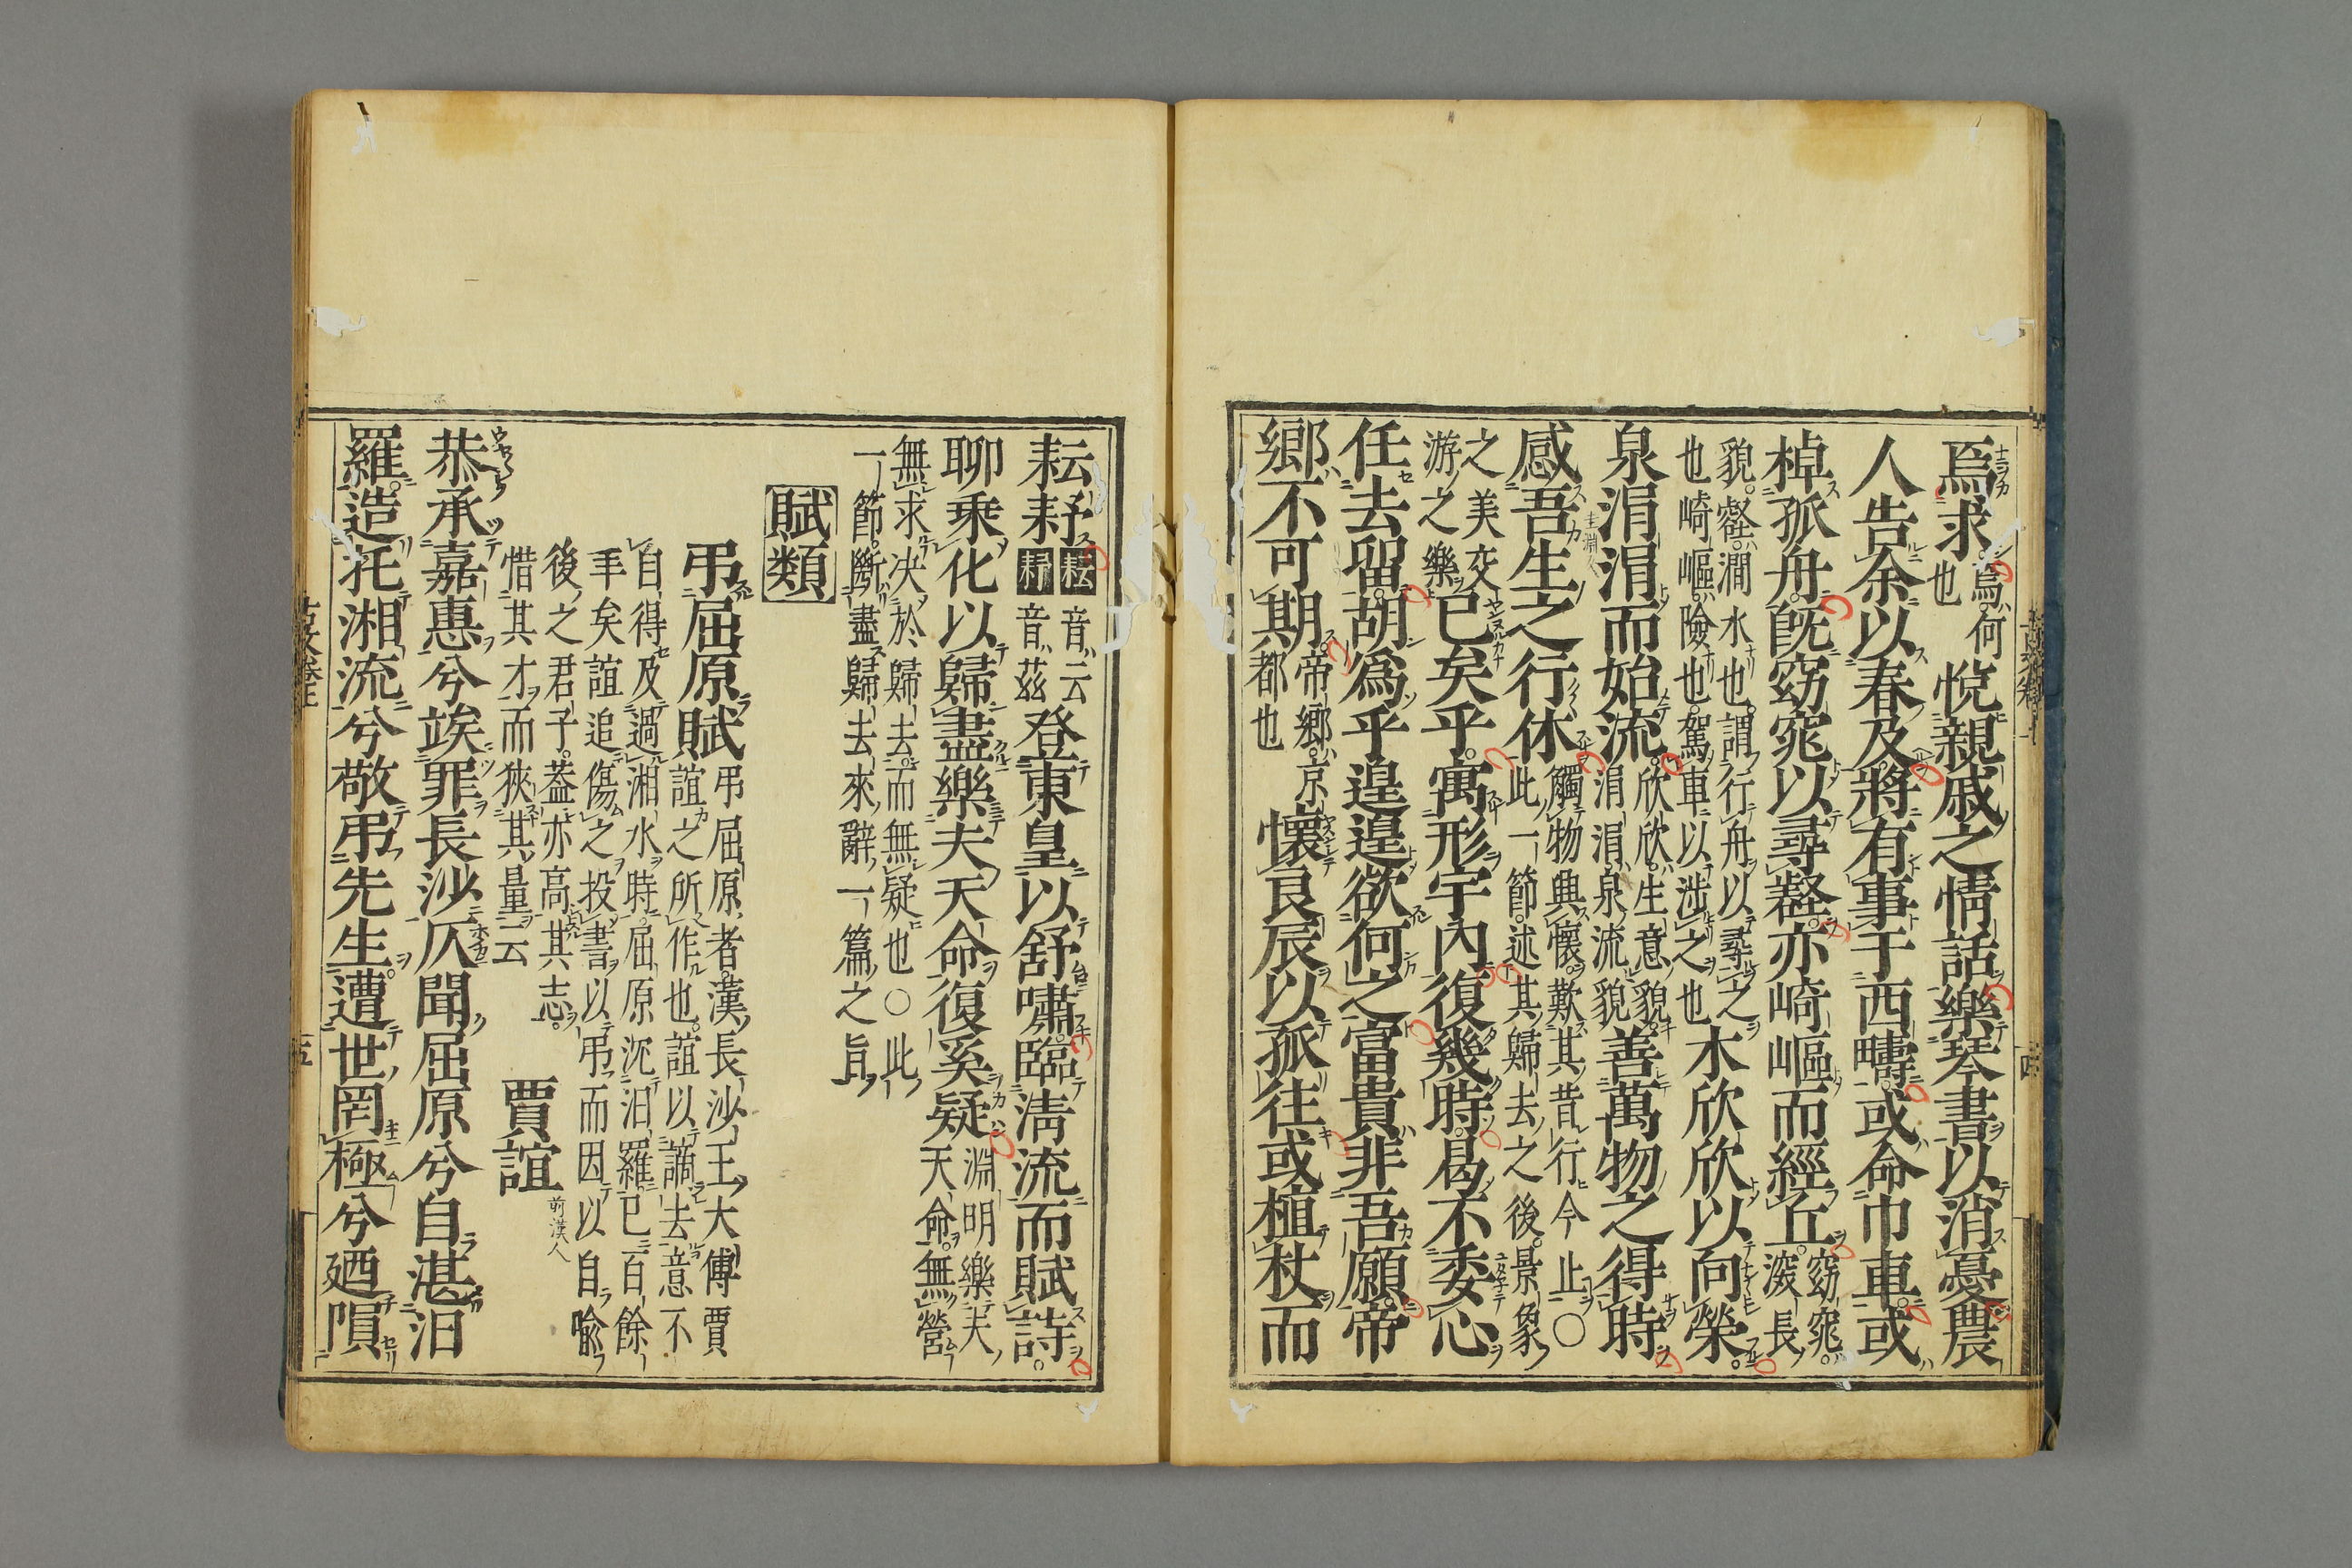 焉求焉何也悅親戚之情話樂琴書以消憂農
人告余以春及將有事于西疇或命巾車或
棹孤舟旣窈窕以尋壑亦崎嶇而經丘窈窕深長
貌壑澗水也謂行舟以尋之也崎嶇險也駕車以涉之也木欣欣以向榮
泉涓涓而始流欣欣生意貌涓涓泉流貌善萬物之得時
感吾生之行休觸物興懷歎其昔行今止○此一節述其歸去之後景象
之美交游之樂已矣乎寓形宇內復幾時曷不委心
任去留胡爲乎遑遑欲何之富貴非吾願帝
鄉不可期帝鄉京都也懷良辰以孤往或植杖而
耘耔耘音云耔音茲登東皇以舒嘯臨淸流而賦詩
聊乘化以歸盡樂夫天命復奚疑淵明樂夫天命無營
無求決於歸去而無疑也○此一節斷盡歸去來辭一篇之旨
賦類
弔屈原賦弔屈原者漢長沙王大傅賈誼之所作也誼以謫去意不
自得及過湘水時屈原沈汨羅已百餘年矣誼追傷之投書以弔而因以自喩
後之君子蓋亦高其志惜其才而狹其量云
賈誼前漢人
恭承嘉惠兮竢罪長沙仄聞屈原兮自湛汨
羅造托湘流兮敬弔先生遭世罔極兮廼隕